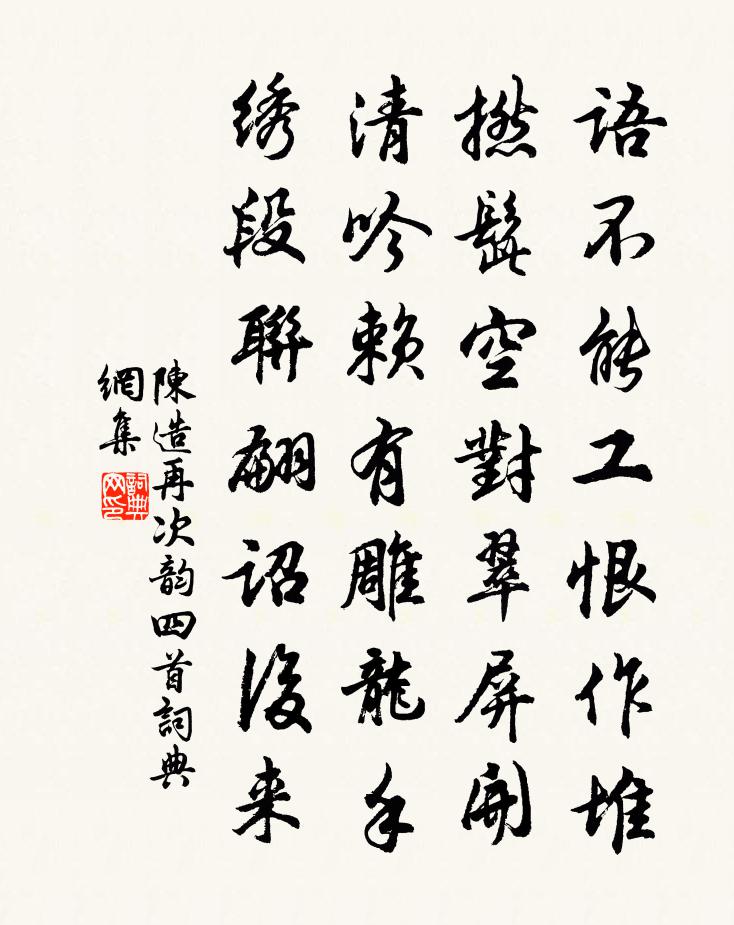 语不能工恨作堆
撚髭空對翠屏開
清吟赖有雕龍手
绣段聯翩诏後来
陳造再次韵四首詞典
網集
詞典
网印